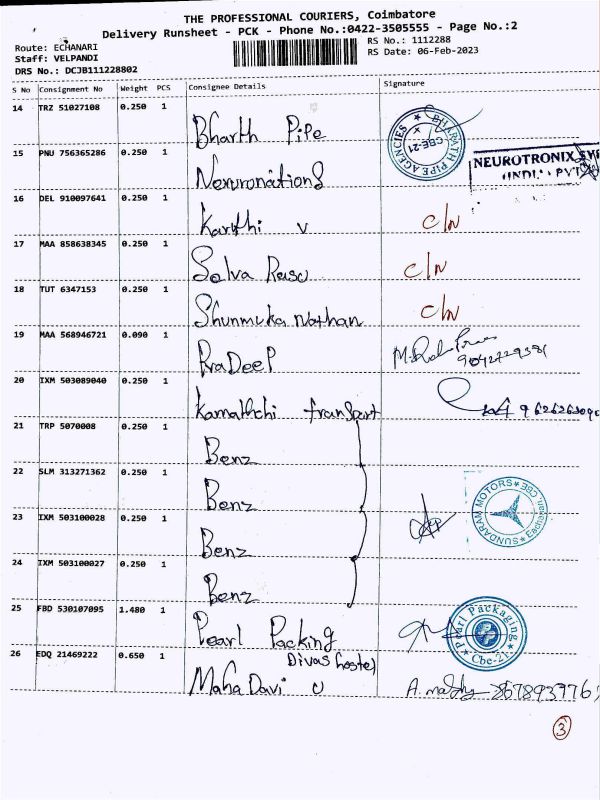 THE PROFESSIONAL COURIERS, Coimbatore
Delivery Runsheet - PCK - Phone No.:0422-3505555 - Page No.:2
Route: ECHANARI
RS No.: 1112288
Staff: VELPANDI
RS Date: 06-Feb-2023
DRS No.: DCJB111228802
S No Consignment No Weight PCS Consignee Details Signature
14 TRZ 51027108 0.250 1
Bharth Pipe
BHARATH PIPE AGENCIES CBE-21
15 PNU 756365286 0.250 1
NEUROTRONIX
16 DEL 910097641 0.250 1
Karthi v c/n
17 MAA 858638345 0.250 1
Selva Rasu c/n
18 TUT 6347153 0.250 1
Shunmuka Nathan c/n
19 MAA 568946721 0.090 1
PraDeeP
20 IXM 503089040 0.250 1
Kamatchi transport
21 TRP 5070008 0.250 1
Benz
22 SLM 313271362 0.250 1
Benz
SUNDARAM MOTORS
23 IXM 503100028 0.250 1
Benz
24 IXM 503100027 0.250 1
Benz
25 FBD 530107095 1.480 1
Pearl Packing
Pearl Packaging Cbe-21
26 EDQ 21469222 0.650 1
Divas hostel
Maha Davi U
3